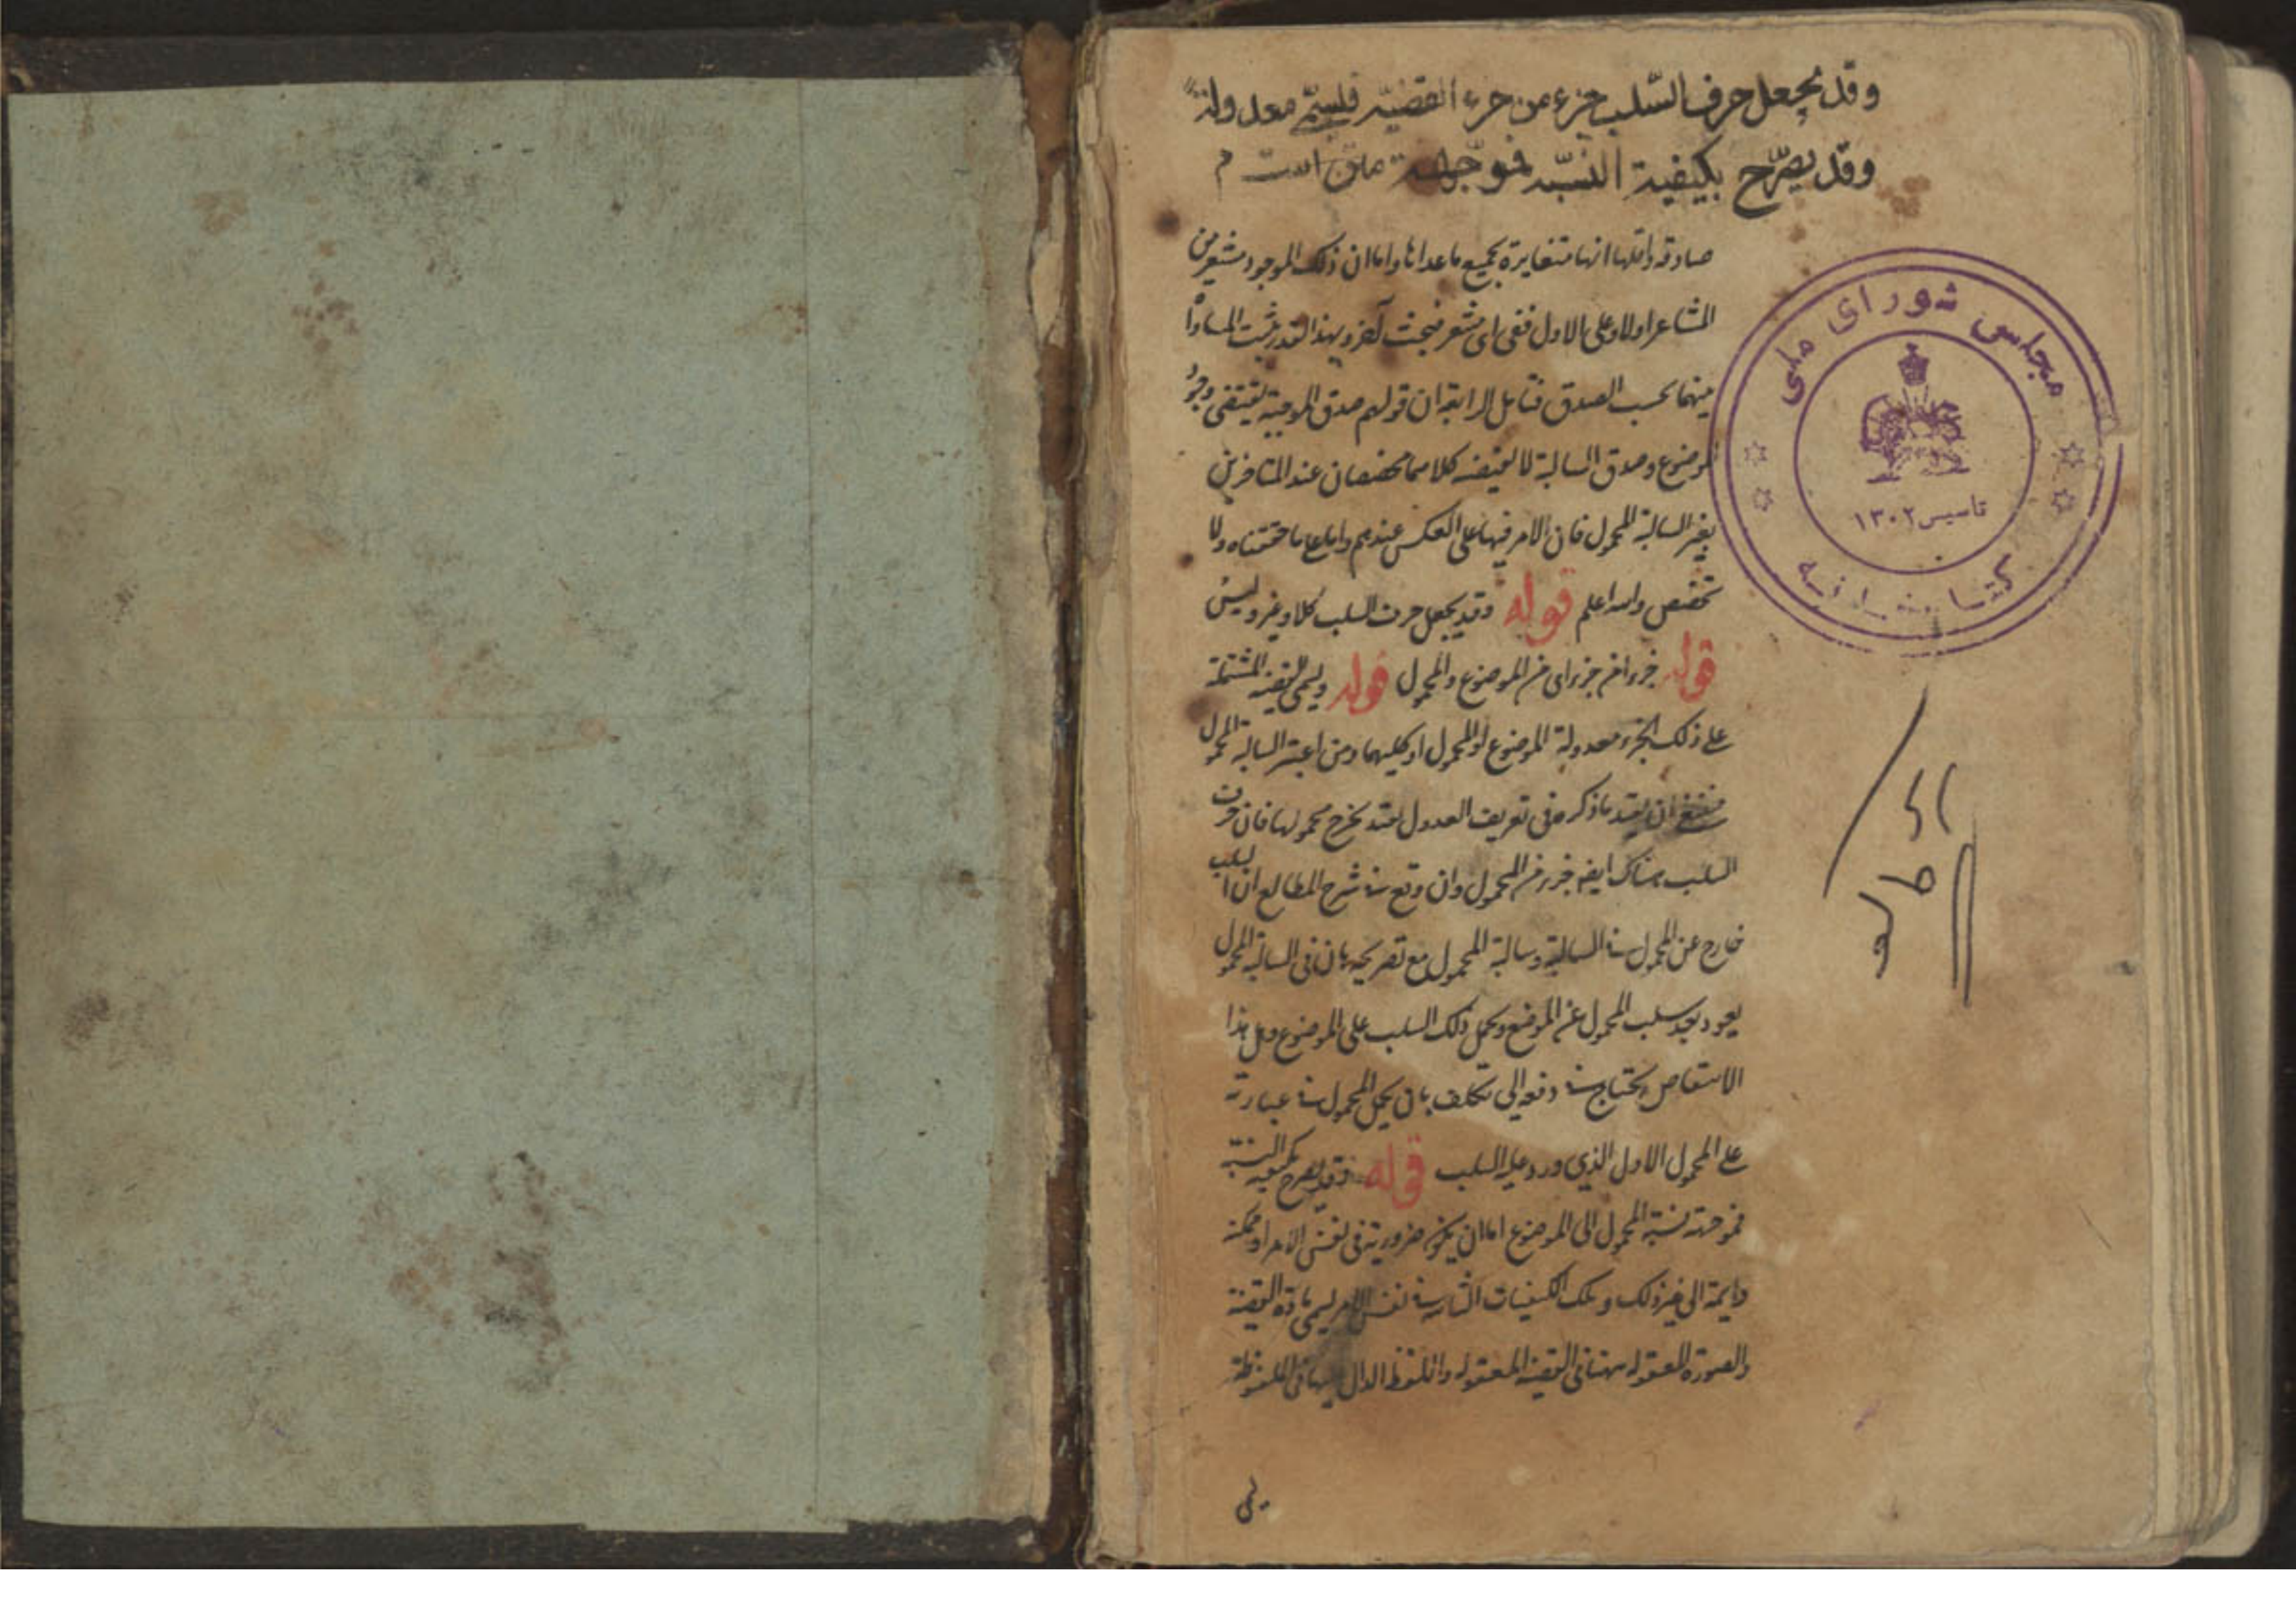 وقد يجعل حرف السّلب جزء من جزء القضيّه فيسمّى معدولة
وقد يصرّح بكيفية النسبه فموجهة متن است م
صادقه واقلها انها متغايرة بجميع ما عداها واما ان ذلك الموجود مشعر من
المشاعر اولا وعلى الاول ففى اى مشعر فبحث آخر وبهذا القدر يثبت المساواة
بينهما بحسب الصدق فتأمل الرابعة ان قولهم صدق الموجبة يقتضى وجود
الموضوع وصدق السالبة لا يقتضيه كلاهما مخصصان عند المتاخرين
بغير السالبة المحمول فان الامر فيها على العكس عندهم واما على ما حققناه ولا
تخصيص والله اعلم قوله وقد يجعل حرف السلب كلا وغير وليس
قوله جزء امن جزء اى من الموضوع والمحمول قوله ويسمى القضية المشتملة
على ذلك الجزء معدولة الموضوع او المحمول او كليهما ومن اعتبر السالبة المحمول
فينبغى ان يقيد ما ذكره فى تعريف العدول بقيد يخرج محمولها فان حرف
السلب هناك ايضا جزء من المحمول وان وقع فى شرح المطالع ان السلب
خارج عن المحمول فى السالبة وسالبة المحمول مع تصريحه بان فى السالبة المحمول
يعود بعد سلب المحمول عن الموضوع ويحمل ذلك السلب على الموضوع وهل هذا
الا تناقض يحتاج فى دفعه الى تكلف بان يحمل المحمول فى عبارته
على المحمول الاول الذي ورد عليه السلب قوله وقد يصرح بكيفية النسبة
فموجهة نسبة المحمول الى الموضوع اما ان يكون ضرورية فى نفس الامر او ممكنة
دايمة الى غير ذلك وتلك الكيفيات الثابتة فى نفس الامر يسمى مادة القضية
والصورة المعقولة منها فى القضية المعقولة واللفظ الدال عليها فى الملفوظة
مجلس شورای ملی
تاسیس ۱۳۰۲
کتابخانه